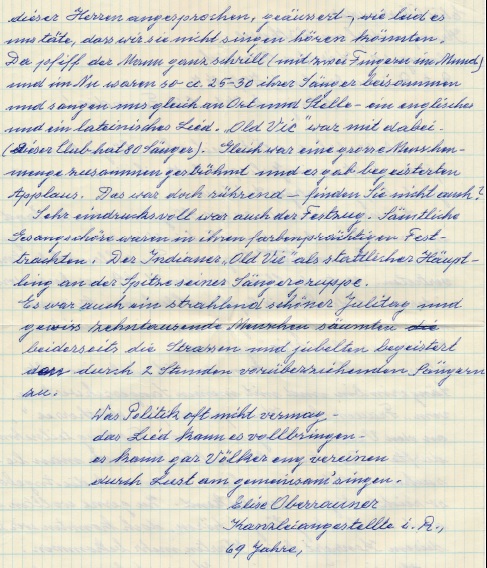 dieser Herren angesprochen, geäussert -, wie leid es
uns täte, dass wir sie nicht singen hören könnten.
Da pfiff der Mann ganz schrill (mit zwei Fingern im Mund)
und im Nu waren so ca. 25-30 ihrer Sänger beisammen
und sangen uns gleich an Ort und Stelle - ein englisches
und ein lateinisches Lied. "Old Vic" war mit dabei.
(dieser Club hat 80 Sänger). Gleich war eine grosse Menschen-
menge zusammen geströhmt und es gab begeisterten
Applaus. Das war doch rührend - finden Sie nicht auch?
Sehr eindrucksvoll war auch der Festzug. Sämtliche
Gesangschöre waren in ihren farbenprächtigen Fest-
trachten. Der Indianer "Old Vic" als stattlicher Häupt-
ling an der Spitze seiner Sängergruppe.
Es war auch ein strahlend schöner Julitag und
gewiss zehntausende Menschen säumten die
beiderseits die Strassen und jubelten begeistert
den durch 2 Stunden vorüberziehenden Sängern
zu.
Was Politik oft nicht vermag -
das Lied kann es vollbringen -
es kann gar Völker eng vereinen
durch Lust am gemeinsam' singen.
Elise Oberrauner
Kanzleiangestellte i. R.,
69 Jahre,